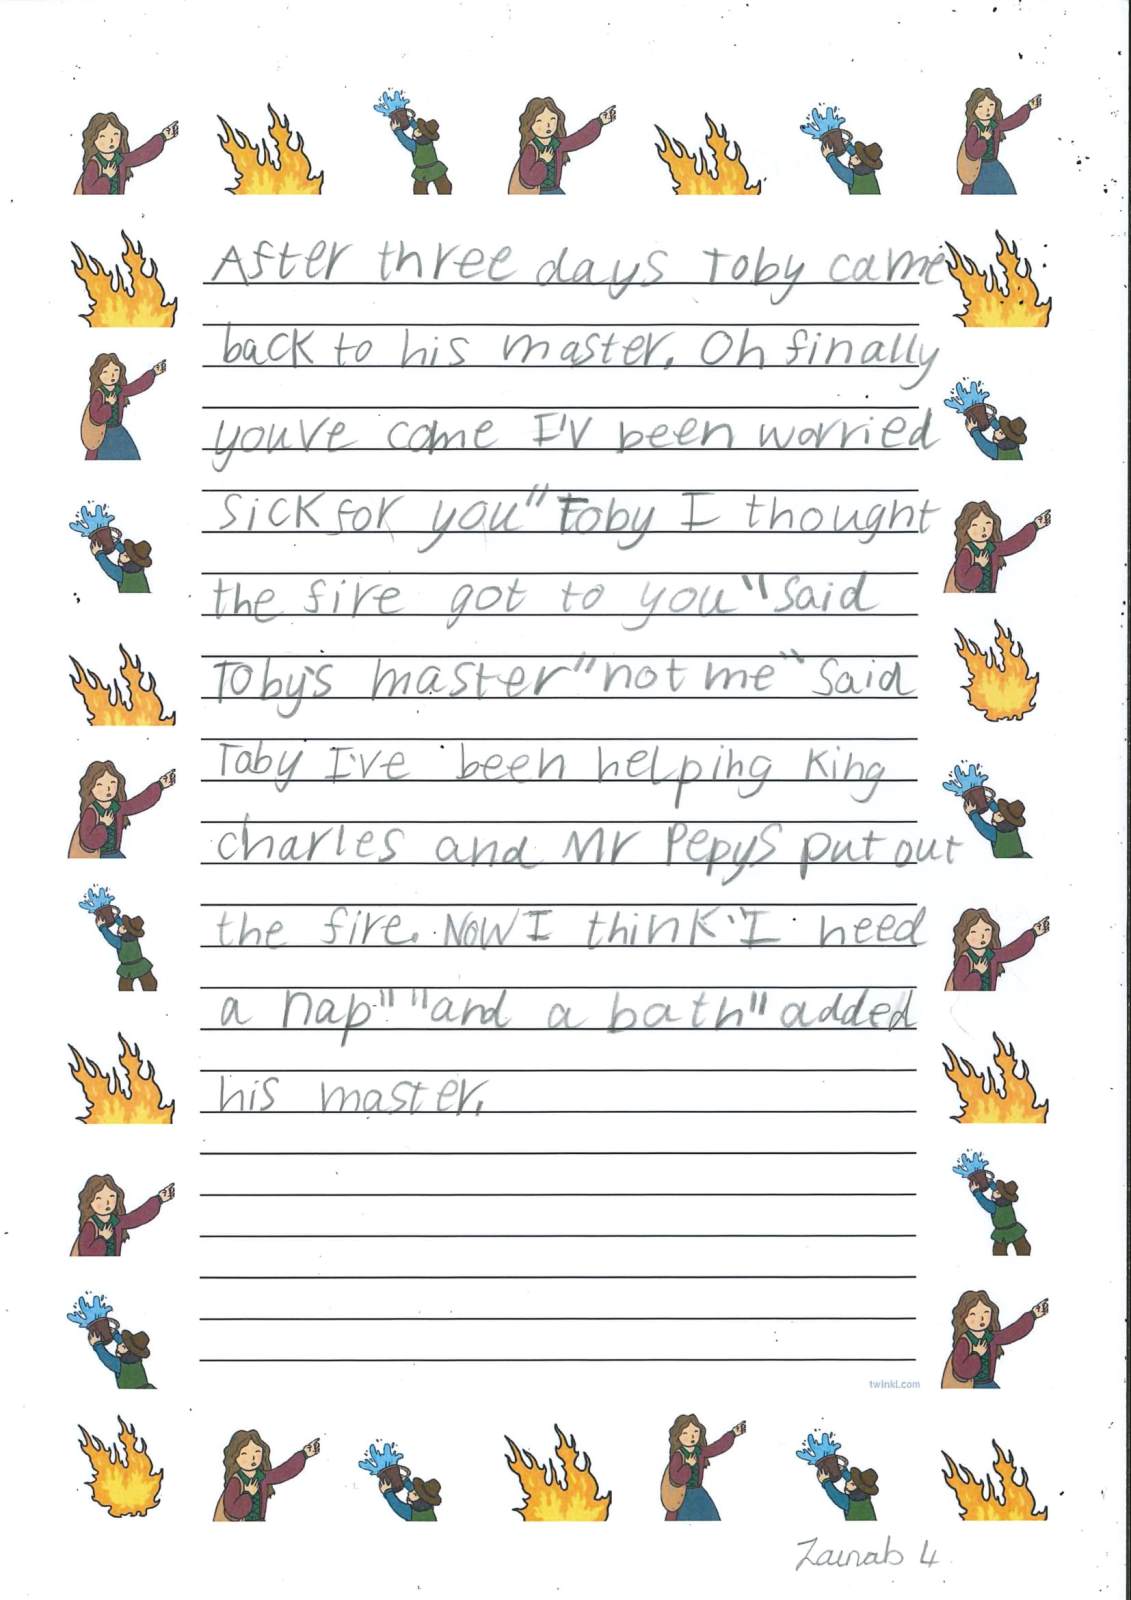 After three days Toby came
back to his master. Oh finally
youve come I'v been worried
sick for you" Toby I thought
the fire got to you" said
Toby's master "not me" said
Toby I've been helping King
charles and Mr Pepys put out
the fire. Now I think "I need
a nap" "and a bath" added
his master.
twinkl.com
Zainab 4